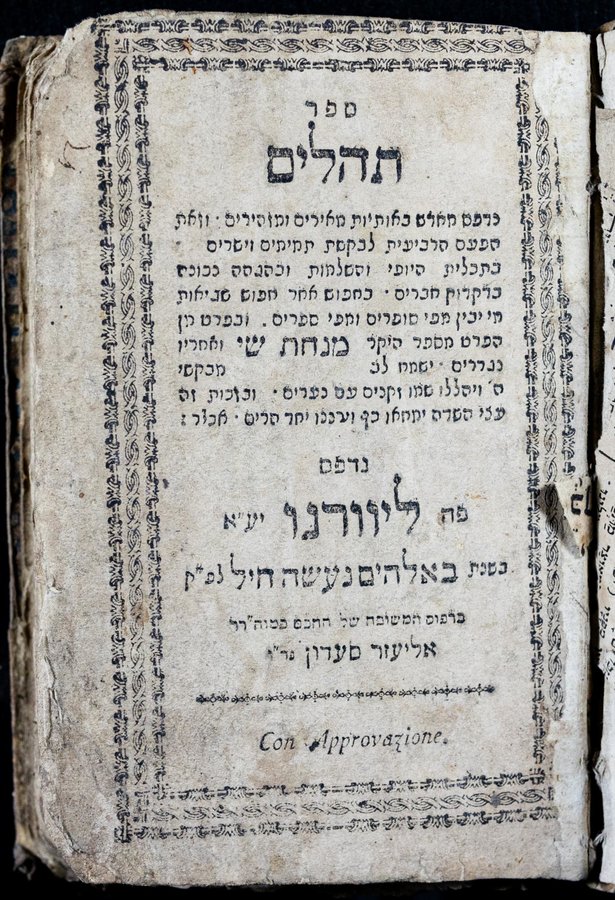 ספר
תהלים
נדפס מחדש באותיות מאירים ומזהירים · וזאת
הפעם הרביעית לבקשת תמימים וישרים
בתכלית היופי והשלמות ובהגהה נכונה
בדקדוק חברים · בחפוש אחר חפוש שגיאות
מי יבין מפי סופרים ומפי ספרים . ובפרט מן
הפרט מספר היקר מנחת שי ואחריו
נגררים · ישמח לב מבקשי
ה' ויהללו שמו זקנים עם נערים · ובזכות זה
עצי השדה ימחאו כף וערננו יחד הרים · אכי״ר :
נדפס
פה ליוורנו יע״א
בשנת באלהים נעשה חיל לפ״ק
בדפוס המשובח של החכם כמוה״רר
אליעזר סעדון
Con Approvazione.